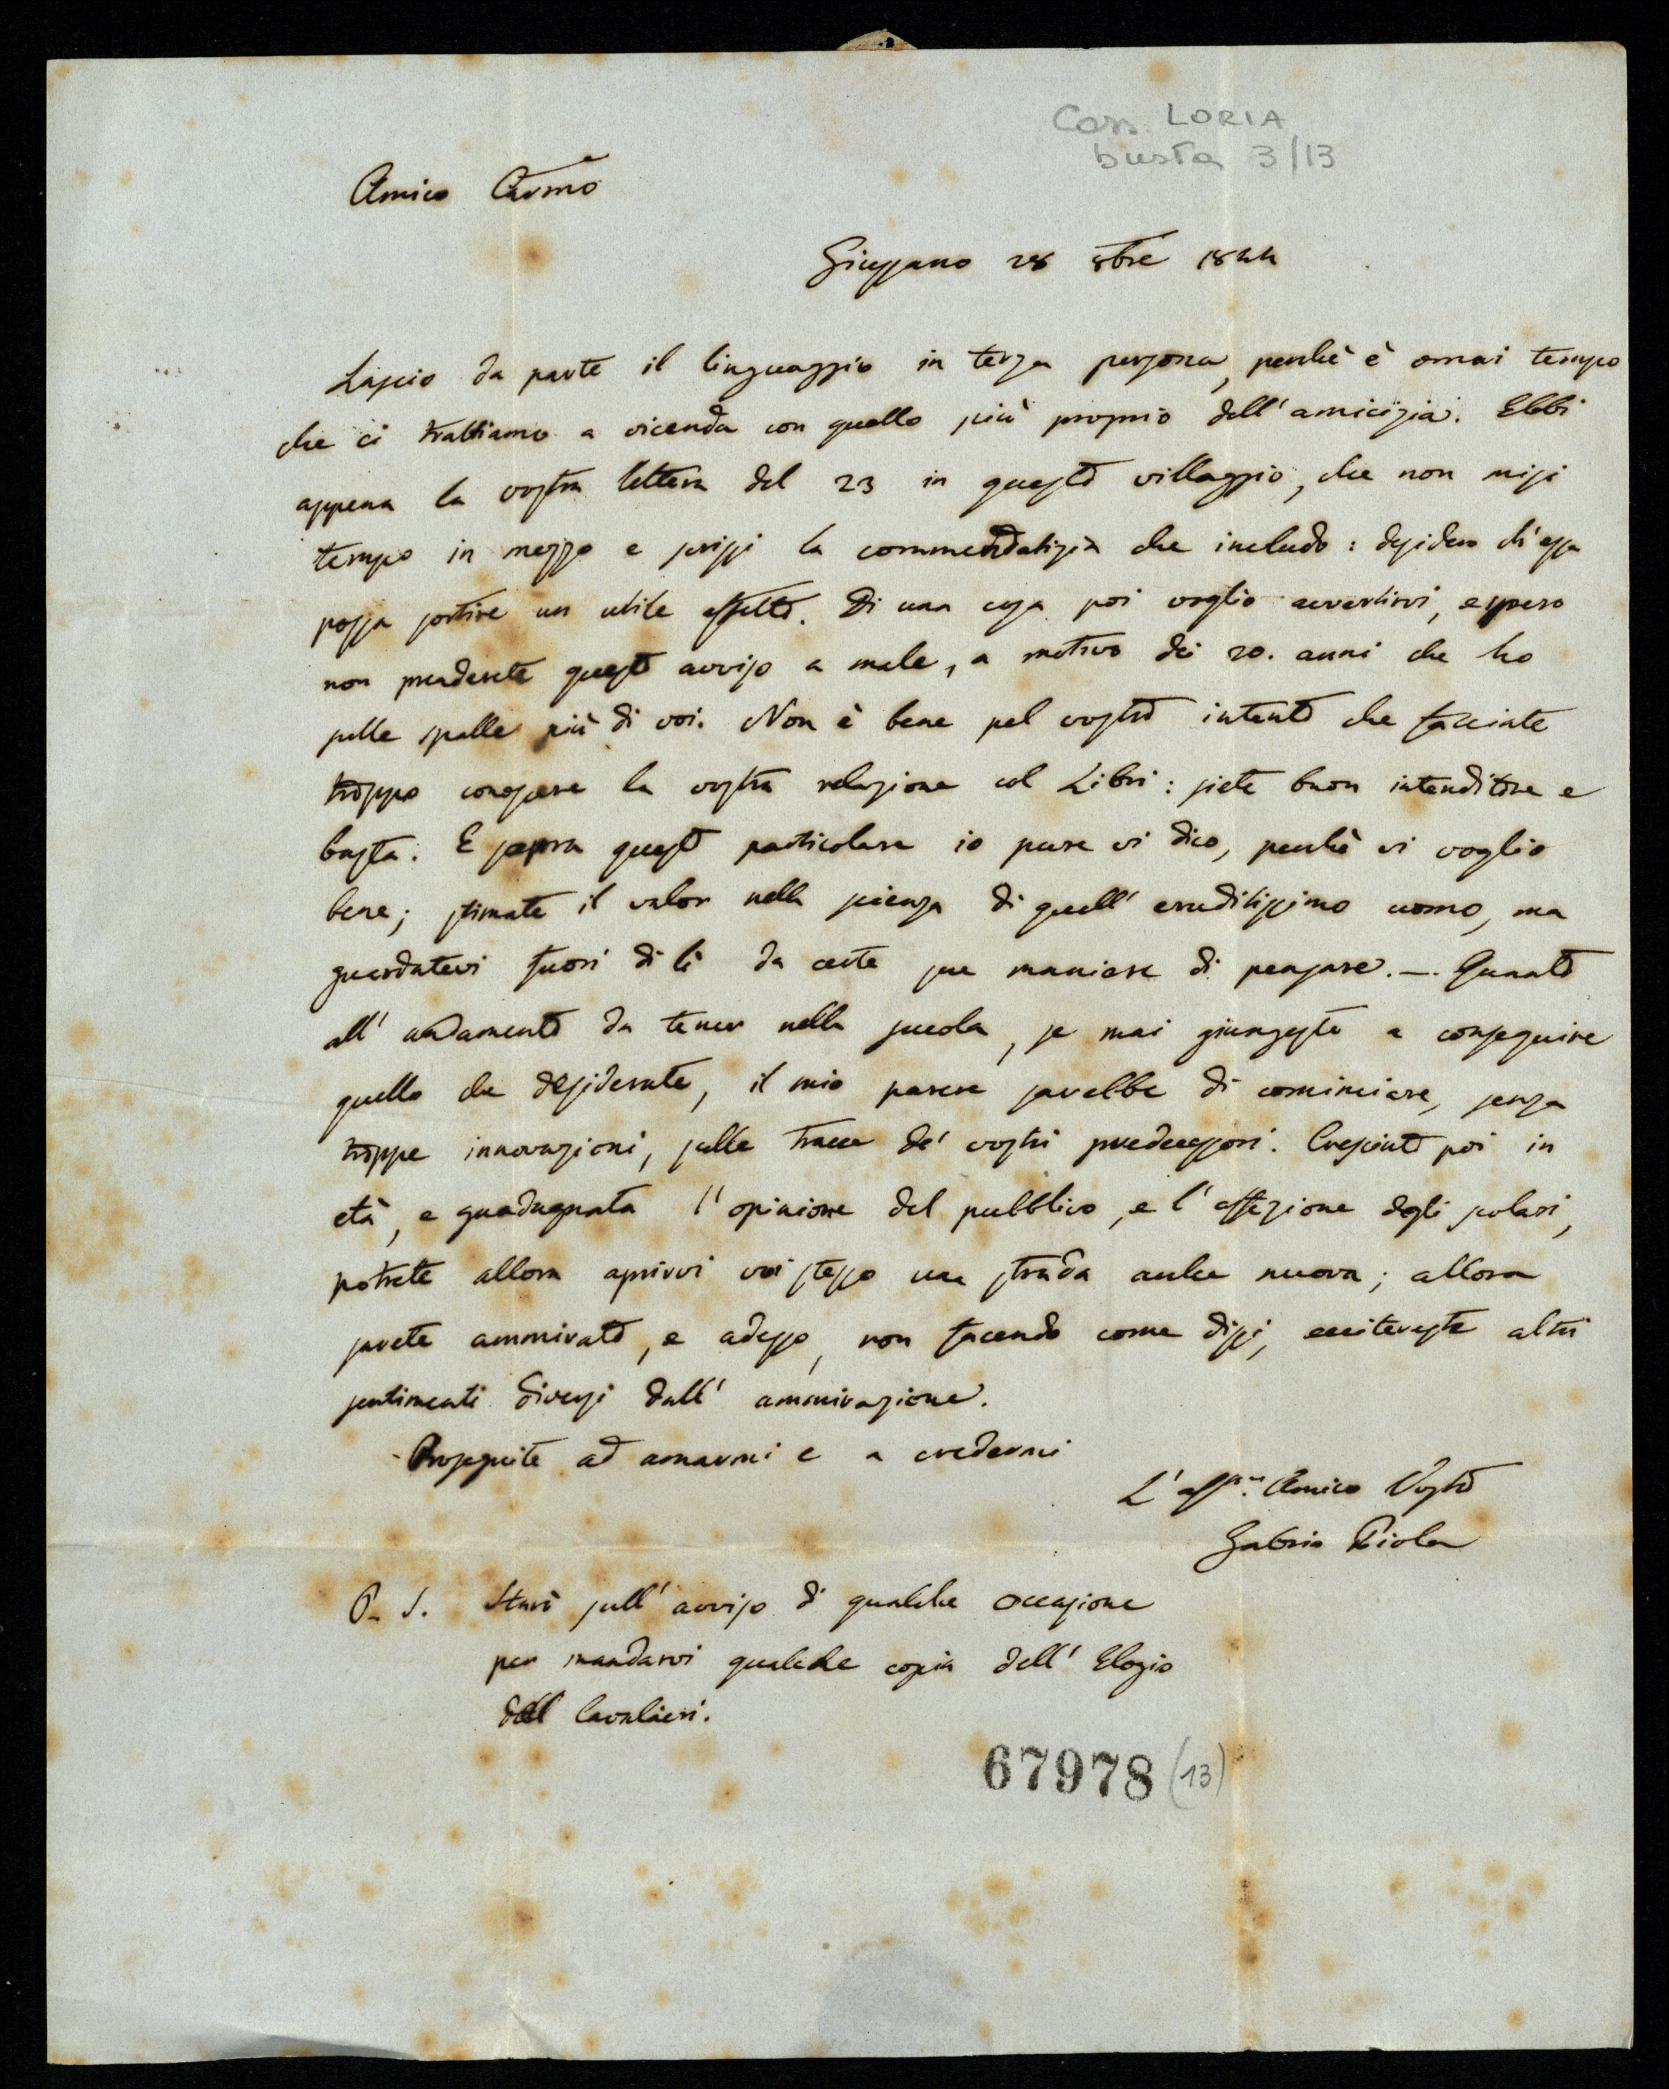 Cass. LORIA
busta 3/13
Amico Carmo
Giussano 28 8bre 1844
Lascio da parte il linguaggio in terza persona, perchè è omai tempo
che ci trattiamo a vicenda con quello più proprio dell'amicizia. Ebbi
appena la vostra lettera del 23 in questo villaggio, che non misi
tempo in mezzo e scrissi la commendatizia che includo: desidero ch'essa
possa sortire un utile effetto. Di una cosa poi voglio avvertirvi, e spero
non prenderete questo avviso a male, a motivo dei 20. anni che ho
sulle spalle più di voi. Non è bene pel vostro intento che facciate
troppo conoscere la vostra relazione col Libri: siete buon intenditore e
basta. E sopra questo particolare io pure vi dico, perchè vi voglio
bene; stimate il valor nella scienza di quell'eruditissimo uomo, ma
guardatevi fuori di lì da certe sue maniere di pensare. —. Quanto
all'andamento da tener nella scuola, se mai giungeste a conseguire
quello che desiderate, il mio parere sarebbe di cominciare, senza
troppe innovazioni, sulle tracce de' vostri predecessori. Cresciuto poi in
età, e guadagnata l'opinione del pubblico, e l'affezione degli scolari,
potrete allora aprirvi voi stesso una strada anche nuova; allora
sarete ammirato, e adesso, non facendo come dissi, eccitereste altri
sentimenti diversi dall'ammirazione.
Proseguite ad amarmi e a credermi
L'affmo. Amico Vostro
Gabrio Piola
P. S. Starò sull'avviso di qualche occasione
per mandarvi qualche copia dell'Elogio
del Cavalieri.
67978 (13)